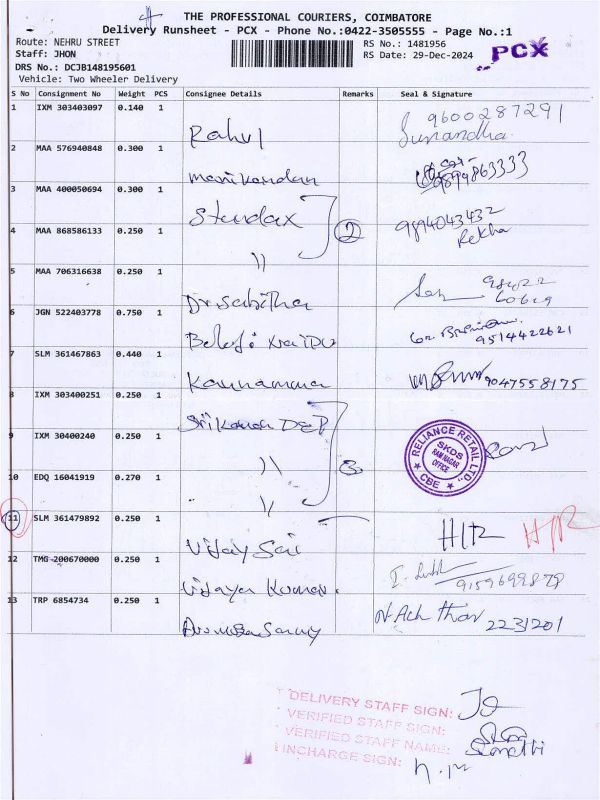 THE PROFESSIONAL COURIERS, COIMBATORE
Delivery Runsheet - PCX - Phone No.:0422-3505555 - Page No.:1
Route: NEHRU STREET
RS No.: 1481956
Staff: JHON
RS Date: 29-Dec-2024
PCX
DRS No.: DCJB148195601
Vehicle: Two Wheeler Delivery
S No Consignment No Weight PCS Consignee Details Remarks Seal & Signature
1 IXM 303403097 0.140 1 Rahul 9600287291
Sunandha
2 MAA 576940848 0.300 1 manikandan 9899863333
3 MAA 400050694 0.300 1 Stendax 9894043432
Rekha
4 MAA 868586133 0.250 1 " 2
5 MAA 706316638 0.250 1 Dr Sabitha
6 JGN 522403778 0.750 1 Balaji 9514422621
7 SLM 361467863 0.440 1 Kannamma 9047558175
8 IXM 303400251 0.250 1 Sri Kanan DEP
9 IXM 30400240 0.250 1 " 3
RELIANCE RETAIL LTD.,
SKDS
RAM NAGAR
OFFICE
CBE
10 EDQ 16041919 0.270 1 "
11 SLM 361479892 0.250 1 Vijay Sai H/R H/R
12 TMG 200670000 0.250 1 Vijaya Kumar. 9159699878
13 TRP 6854734 0.250 1 223201
DELIVERY STAFF SIGN:
VERIFIED STAFF SIGN:
VERIFIED STAFF NAME:
INCHARGE SIGN: